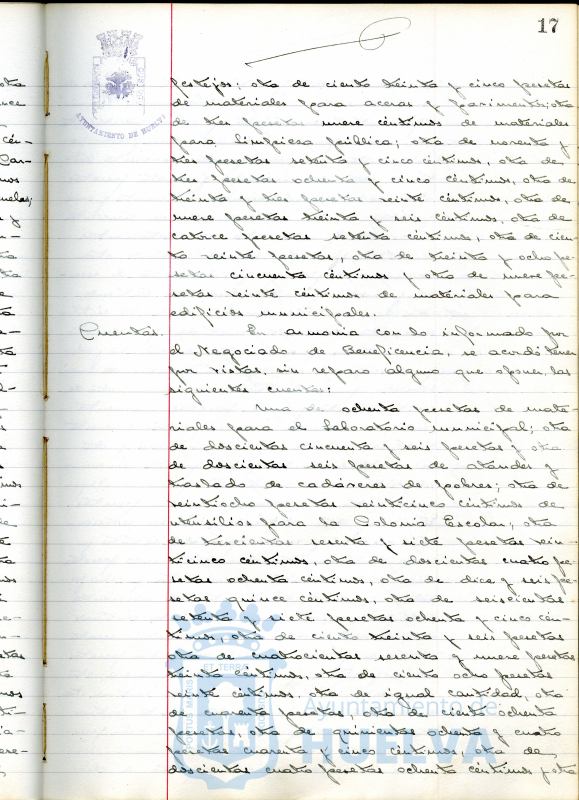 17
AYUNTAMIENTO DE HUELVA
festejos; otra de ciento treinta y cinco pesetas
de materiales para aceras y pavimentos; otra
de tres pesetas nueve céntimos de materiales
para limpieza pública; otra de noventa y
tres pesetas setenta y cinco céntimos, otra de
tres pesetas ochenta y cinco céntimos, otra de
treinta y tres pesetas veinte céntimos, otra de
nueve pesetas treinta y seis céntimos, otra de
catorce pesetas setenta céntimos, otra de cien-
to veinte pesetas, otra de treinta y ocho pe-
setas cincuenta céntimos y otra de nueve pe-
setas veinte céntimos de materiales para
edificios municipales.
Cuentas. En armonia con lo informado por
el Negociado de Beneficencia, se acordó tener
por vistas, sin reparo alguno que oponer, las
siguientes cuentas:
Una de ochenta pesetas de mate-
riales para el Laboratorio municipal; otra
de doscientas cincuenta y seis pesetas y otra
de doscientas seis pesetas de ataudes y
traslado de cadáveres de pobres; otra de
veintiocho pesetas veinticinco céntimos de
utensilios para la Colonia Escolar; otra
de trescientas sesenta y siete pesetas vein-
ticinco céntimos, otra de doscientas cuatro pe-
setas ochenta céntimos, otra de diez y seis pe-
setas quince céntimos, otra de seiscientas
setenta y siete pesetas ochenta y cinco cén-
timos, otra de ciento treinta y seis pesetas
otra de cuatrocientas sesenta y nueve pesetas
treinta céntimos, otra de ciento ocho pesetas
veinte céntimos, otra de igual cantidad, otra
de cuarenta pesetas, otra de ciento ochenta
pesetas, otra de quinientas ochenta y cuatro
pesetas cuarenta y cinco céntimos, otra de
doscientas cuatro pesetas ochenta céntimos y otra
Ayuntamiento de
HUELVA